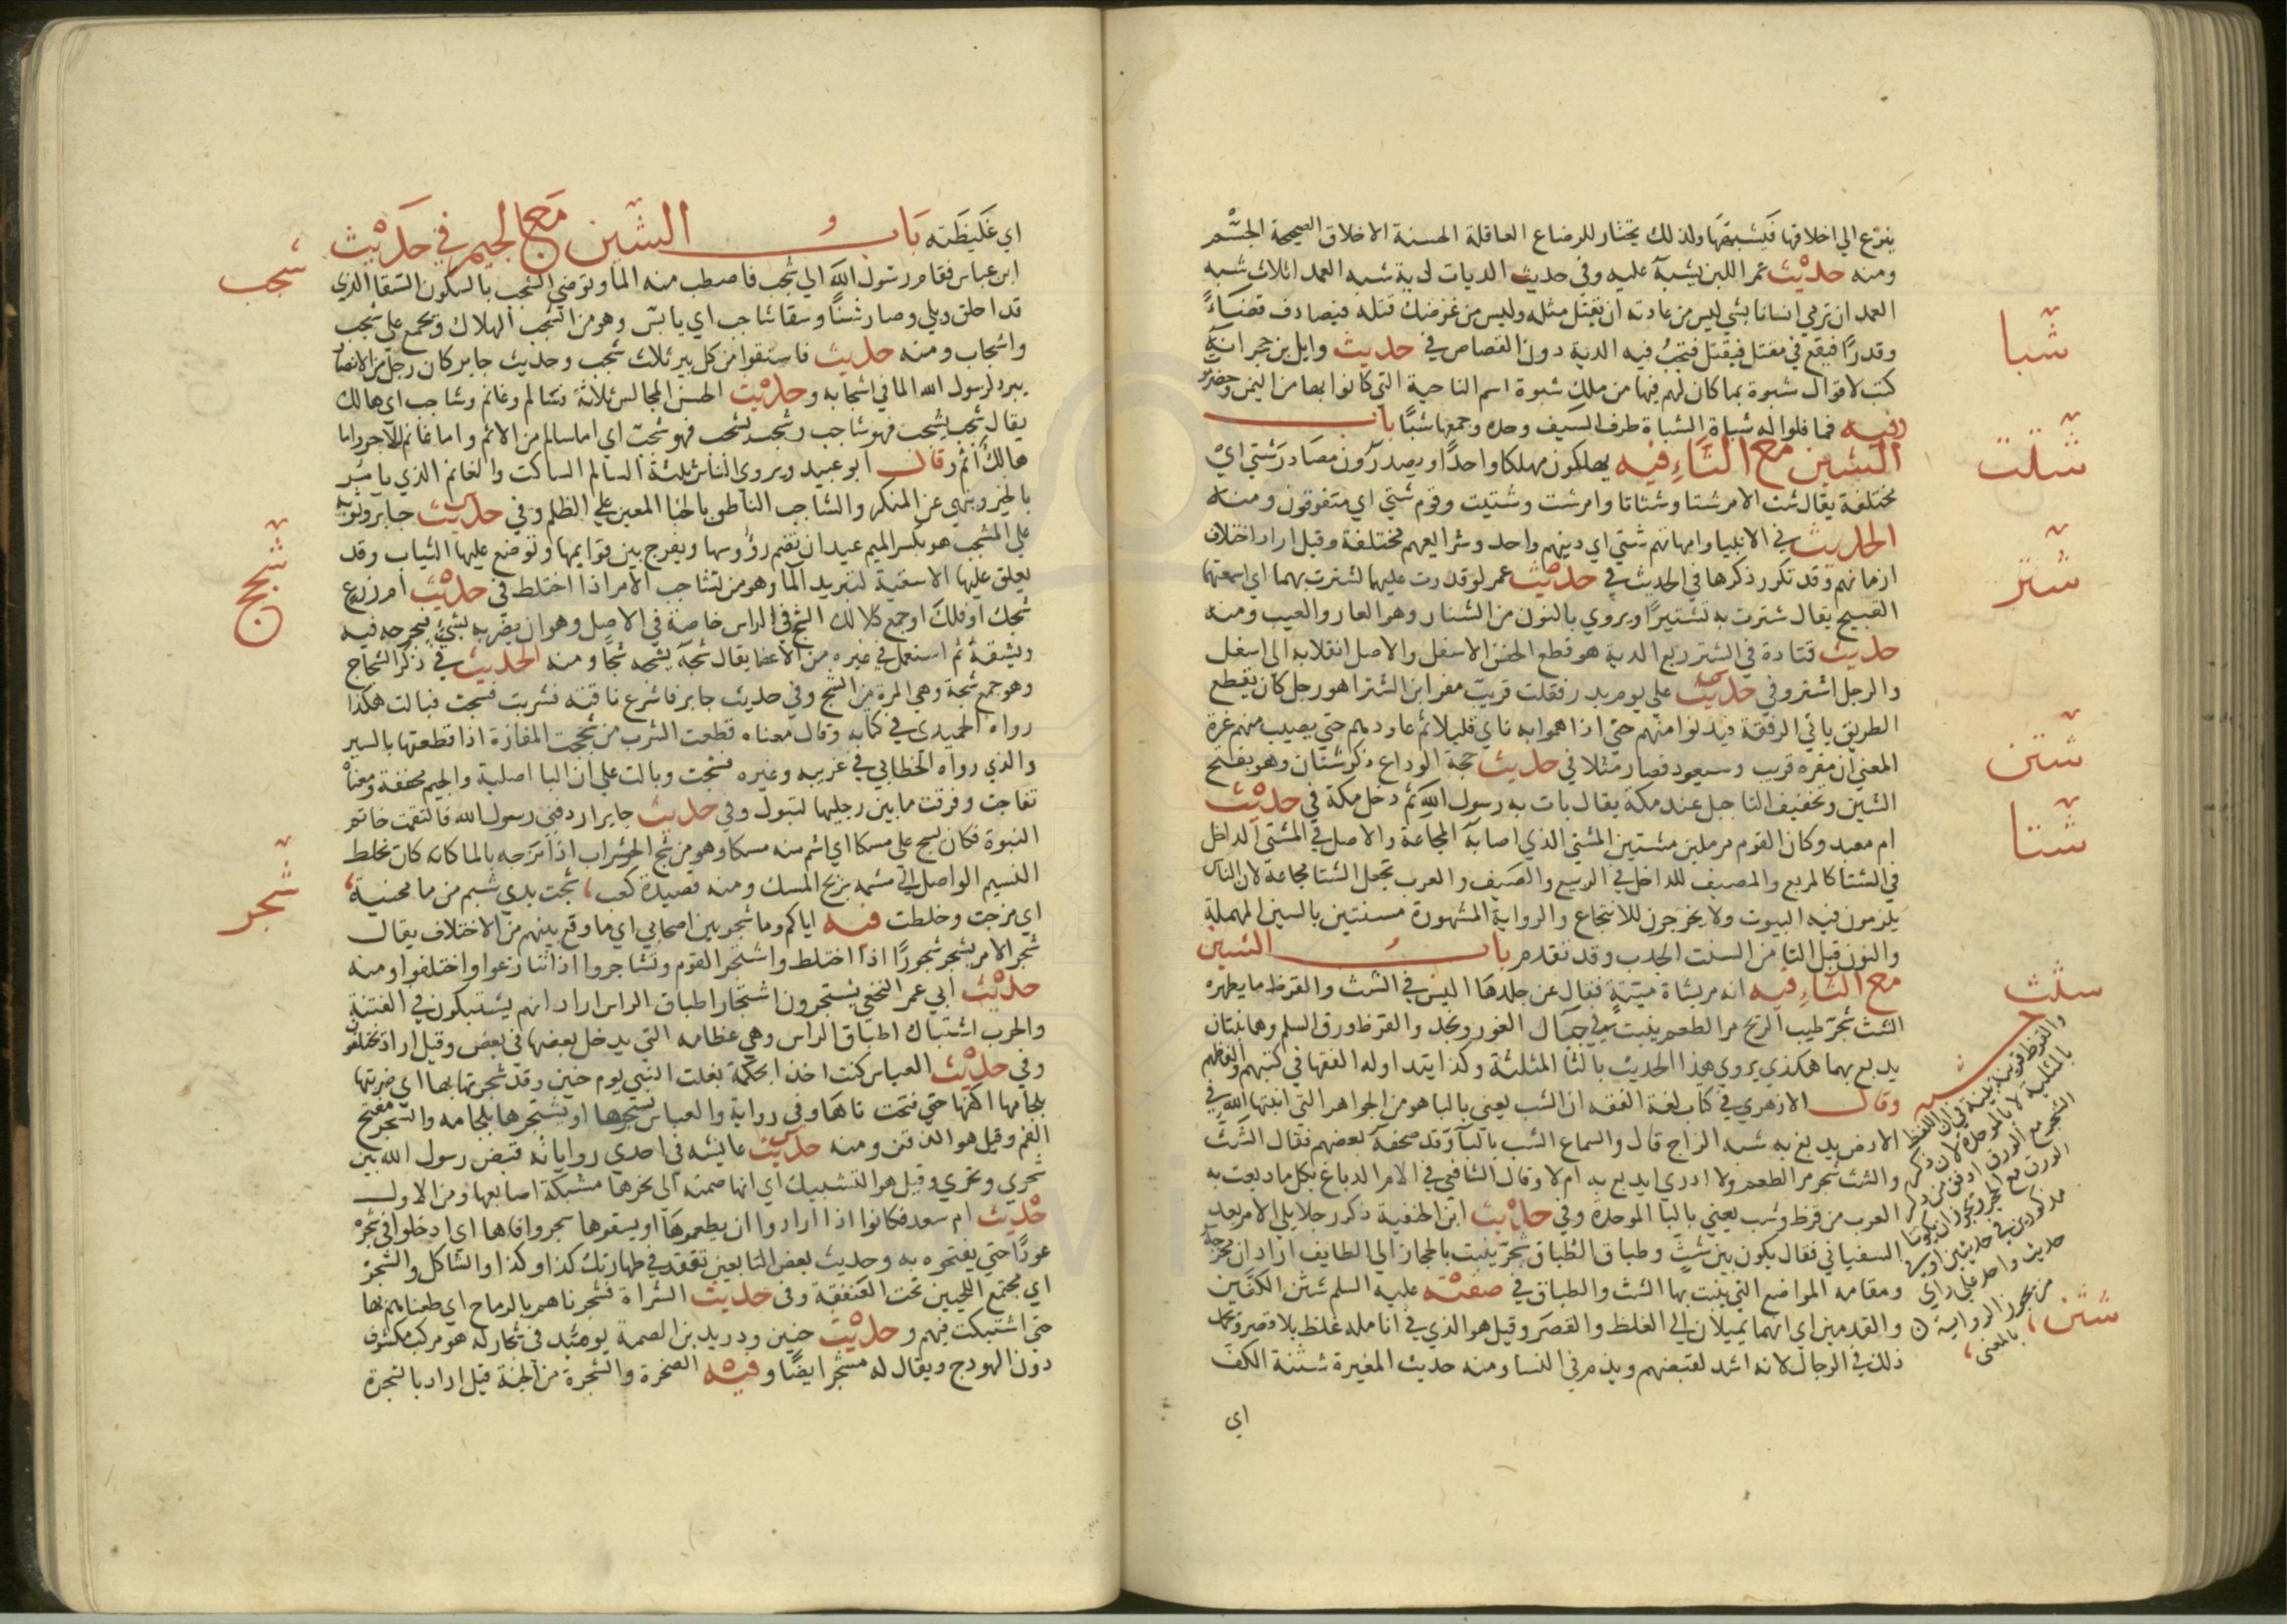 ينزع الي اخلاقها فيشبهها ولذلك يختار للرضاع العاقلة الحسنة الاخلاق الصحيحة الجسم
ومنه حديث عمر اللبن يشبه عليه وفي حديث الديات لدية شبه العمد اثلاث شبه
العمد ان ترمي انسانا بشي ليس من عادته ان يقتل مثله وليس من غرضك قتله فيصادف قضاءً
وقدرًا فيقع في مقتل فيقتل فتجب فيه الدية دون القصاص في حديث وايل بن حجر انه
كتب لاقوال شبوة بما كان لهم فيها من ملك شبوة اسم الناحية التي كانوا بها من اليمن وحضرموت
وفيه فما فلوا له شباة الشباة طرف السيف وحده وجمعها شبًا باب
الشين مع التاء فيه يهلكون مهلكا واحدًا ويصدرون مصادر شتي اي
مختلفة يقال شت الامر شتا وشتاتا وامر شت وشتيت وقوم شتي اي متفرقون ومنه
الحديث في الانبيا وامهاتهم شتي اي دينهم واحد وشرايعهم مختلفة وقيل اراد اختلاف
ازمانهم وقد تكرر ذكرها في الحديث في حديث عمر لو قدرت عليهما لشترت بهما اي اسمعتهما
القبيح يقال شترت به تشتيرًا ويروي بالنون من الشنار وهو العار والعيب ومنه
حديث قتادة في الشتر ربع الدية هو قطع الجفن الاسفل والاصل انقلابه الي اسفل
والرجل اشتر وفي حديث علي يوم بدر فقلت قريب مفر ابن الشترا هو رجل كان يقطع
الطريق ياتي الرفقة فيدنوا منهم حتي اذا هموا به ناي قليلا ثم عاودهم حتي يصيب منهم غرة
المعني ان مفره قريب وسيعود فصار مثلا في حديث حجة الوداع ذكر شتان وهو بفتح
الشين وتخفيف التا جبل عند مكة يقال بات به رسول الله ثم دخل مكة في حديث
ام معبد وكان القوم مرملين مشتين المشتي الذي اصابه المجاعة والاصل في المشتي الداخل
في الشتا كالمربع والمصيف للداخل في الربيع والصيف والعرب تجعل الشتا مجاعة لان الناس
يلزمون فيه البيوت ولا يخرجون للانتجاع والرواية المشهورة مسنتين بالسين المهملة
والنون قبل التا من السنت الجدب وقد تقدم باب الشين
مع الثاء فيه انه مر بشاة ميتة فقال عن جلدها اليس في الشث والقرظ ما يطهره
الشث شجر طيب الريح مر الطعم ينبت في جبال الغور ونجد والقرظ ورق السلم وهما نبتان
يدبغ بهما هكذي يروي هذا الحديث بالثا المثلثة وكذا يتداوله الفقها في كتبهم والفاظهم
وقال الازهري في كتاب لغة الفقه ان الشب يعني بالبا هو من الجواهر التي انبتها الله في
الارض يدبغ به شبه الزاج قال والسماع الشب بالبا وقد صحفه بعضهم فقال الشث
والشث شجر مر الطعم ولا ادري ايدبغ به ام لا وقال الشافعي في الام الدباغ بكل ما دبغت به
العرب من قرظ وشب يعني بالبا الموحدة وفي حديث ابن الحنفية ذكر رجلا يلي الامر بعد
السفياني فقال يكون بين شث وطباق الطباق شجر ينبت بالحجاز الي الطايف اراد ان مخرجه
ومقامه المواضع التي ينبت بها الشث والطباق في صفته عليه السلم شثن الكفين
والقدمين اي انهما يميلان الي الغلظ والقصر وقيل هو الذي في انامله غلظ بلا قصر ويحمد
ذلك في الرجال لانه اشد لقبضهم ويذم في النسا ومنه حديث المغيرة شثنة الكف
اي
شبا
شتت
شتر
شتن
شتا
شثث
والقرظ قرينة بينة في ان اللفظ
بالمثلثة لا بالموحدة لان ذكر
الشجر مع الورق اوفق من ذكر
الورق مع الحجر ويجوز ان يكونا
مذكورين في حديثين او في
حديث واحد علي راي
من يجوز الرواية
بالمعني
شثن
اي غليظته باب الشين مع الجيم في حديث
ابن عباس فقام رسول الله الي شجب فاصطب منه الما وتوضي الشجب بالسكون السقا الذي
قد اخلق وبلي وصار شنًا وسقا شاجب اي يابس وهو من الشجب الهلاك ويجمع علي شجب
واشجاب ومنه حديث فاستقوا من كل بير ثلاث شجب وحديث جابر كان رجل من الانصار
يبرد لرسول الله الما في اشجابه وحديث الحسن المجالس ثلاثة فسالم وغانم وشاجب اي هالك
يقال شجب يشجب فهو شاجب وشجب يشجب فهو شجب اي اما سالم من الاثم واما غانم للاجر واما
هالك اثم وقال ابو عبيد ويروي الناس ثلثة السالم الساكت والغانم الذي يامر
بالخير وينهي عن المنكر والشاجب الناطق بالخنا المعين علي الظلم وفي حديث جابر وثوبه
علي المشجب هو بكسر الميم عيدان تضم رؤوسها ويفرج بين قوايمها وتوضع عليها الثياب وقد
يعلق عليها الاسقية لتبريد الما وهو من تشاجب الامر اذا اختلط في حديث ام زرع
شجك او فلك او جمع كلا لك الشج في الراس خاصة في الاصل وهو ان يضربه بشي فيجرحه فيه
ويشقه ثم استعمل في غيره من الاعضا يقال شجه يشجه شجًا ومنه الحديث في ذكر الشجاج
وهو جمع شجة وهي المرة من الشج وفي حديث جابر فاشرع ناقته فشربت فشجت فبالت هكذا
رواه الحميدي في كتابه وقال معناه قطعت الشرب من شججت المفازة اذا قطعتها بالسير
والذي رواه الخطابي في غريبه وغيره فشجت وبالت علي ان البا اصلية والجيم مخففة ومعناه
تفاجت وفرقت ما بين رجليها لتبول وفي حديث جابر اردفني رسول الله فالتقمت خاتم
النبوة فكان يشج علي مسكا اي اشم منه مسكا وهو من شج الشراب اذا مزجه بالما كانه كان يخلط
النسيم الواصل الي مشمه بريح المسك ومنه قصيدة كعب شجت بذي شبم من ما محنية
اي مزجت وخلطت فيه اياكم وما شجر بين اصحابي اي ما وقع بينهم من الاختلاف يقال
شجر الامر يشجر شجورًا اذا اختلط واشتجر القوم وتشاجروا اذا تنازعوا واختلفوا ومنه
حديث ابي عمر النخعي يشتجرون اشتجار اطباق الراس اراد انهم يشتبكون في الفتنة
والحرب اشتباك اطباق الراس وهي عظامه التي يدخل بعضها في بعض وقيل اراد يختلفون
وفي حديث العباس كنت اخذا بحكمة بغلت النبي يوم حنين وقد شجرتها بها اي ضربتها
بلجامها اكفها حتي فتحت فاها وفي رواية والعباس يشجرها او يشتجرها بلجامه والشجر مفتح
الفم وقيل هو الذقن ومنه حديث عايشه في احدي رواياته قبض رسول الله بين
شجري ونحري وقيل هو التشبيك اي انها ضمته الي نحرها مشبكة اصابعها ومن الاول
حديث ام سعد فكانوا اذا ارادوا ان يطعموها او يسقوها شجروا فاها اي ادخلوا في شجره
عودًا حتي يفتحوه به وحديث بعض التابعين تفقد في طهارتك كذا وكذا والشاكل والشجر
اي مجتمع اللحيين تحت العنفقة وفي حديث الشراة فشجرناهم بالرماح اي طعناهم بها
حتي اشتبكت فيهم وحديث حنين ودريد بن الصمة يومئذ في شجار له هو مركب مكشوف
دون الهودج ويقال له مشجر ايضًا وفيه الصخرة والشجرة من الجنة قيل اراد بالشجرة
شجب
شجج
شجر